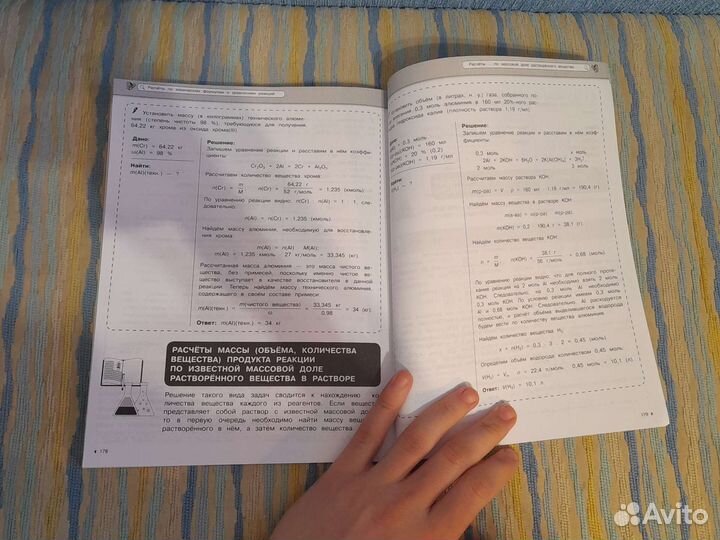 Расчёты по химическим формулам и уравнениям реакций
Установить массу (в килограммах) технического алюми-
ния (степень чистоты 98 %), требующуюся для получения
64,22 кг хрома из оксида хрома(III)
Дано:
m(Cr) = 64,22 кг
ω(Al) = 98 %
Найти:
m(Al)(техн.) — ?
Решение:
Запишем уравнение реакции и расставим в нём коэффи-
циенты:
Cr₂O₃ + 2Al = 2Cr + Al₂O₃
Рассчитаем количество вещества хрома:
n(Cr) = m/M n(Cr) = 64,22 г / 52 г/моль = 1,235 (кмоль)
По уравнению реакции видно: n(Cr) : n(Al) = 1 : 1, сле-
довательно:
n(Al) = n(Cr) = 1,235 (кмоль)
Найдём массу алюминия, необходимую для восстановле-
ния хрома:
m(Al) = n(Al) · M(Al)
m(Al) = 1,235 кмоль · 27 кг/моль = 33,345 (кг)
Рассчитанная масса алюминия — это масса чистого ве-
щества, без примесей, поскольку именно чистое ве-
щество выступает в качестве восстановителя в данной
реакции. Теперь найдём массу технического алюминия,
содержащего в своём составе примеси:
m(Al)(техн.) = m(чистого вещества)/ω = 33,345 кг/0,98 = 34 (кг)
Ответ: m(Al)(техн.) = 34 кг
РАСЧЁТЫ МАССЫ (ОБЪЁМА, КОЛИЧЕСТВА
ВЕЩЕСТВА) ПРОДУКТА РЕАКЦИИ
ПО ИЗВЕСТНОЙ МАССОВОЙ ДОЛЕ
РАСТВОРЁННОГО ВЕЩЕСТВА В РАСТВОРЕ
Решение такого вида задач сводится к нахождению ко-
личества вещества каждого из реагентов. Если вещество
представляет собой раствор с известной массовой дол
то в первую очередь необходимо найти массу вещес
растворённого в нём, а затем количество вещества.
178
Расчёты по массовой доле растворённого вещества
объём (в литрах, н. у.) газа, собранного по-
0,3 моль алюминия в 160 мл 20%-ного рас-
гидроксида калия (плотность раствора 1,19 г/мл)
= 0,3 моль
= 160 мл
= 20 % (0,2)
= 1,19 г/мл
— ?
Решение:
Запишем уравнение реакции и расставим в нём коэф-
фициенты:
0,3 моль x моль
2Al + 2KOH + 6H₂O = 2K[Al(OH)₄] + 3H₂↑
2 моль 3 моль
Рассчитаем массу раствора KOH:
m(р-ра) = V · ρ = 160 мл · 1,19 г/мл = 190,4 (г)
Найдём массу вещества в растворе KOH:
m(в-ва) = ω(р-ра) · m(р-ра)
m(KOH) = 0,2 · 190,4 г = 38,1 (г)
Найдём количество вещества KOH:
n = m/M n(KOH) = 38,1 г / 56 г/моль = 0,68 (моль)
По уравнению реакции видно, что для полного проте-
кания реакции на 2 моль Al необходимо взять 2 моль
KOH. Следовательно, на 0,3 моль Al необходимо 0,3 моль
KOH. По условию реакции имеем 0,3 моль
Al и 0,68 моль KOH. Следовательно, Al расходуется
полностью, и расчёт объёма выделившегося водорода
будем вести по количеству вещества алюминия.
Найдём количество вещества H₂:
x = n(H₂) = 0,3 · 3 : 2 = 0,45 (моль)
Определим объём водорода количеством 0,45 моль:
V(H₂) = Vₘ · n = 22,4 л/моль · 0,45 моль = 10,1 (л)
Ответ: V(H₂) = 10,1 л
179
Avito